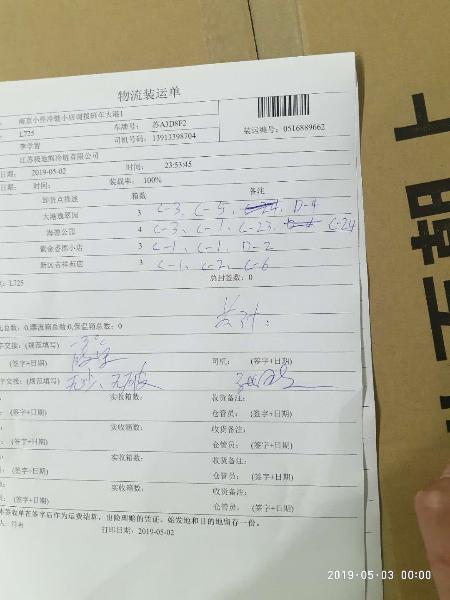 物流装运单
南京小件冷链小店调拨班车大港1
L725 车牌号: 苏A3D8F2
李学智 司机号码: 13913398704
装运编号: 0516889662
江苏极地熊冷链有限公司
日期: 2019-05-02 时间: 23:53:45
日期: 时间: 装载率: 100%
卸货点描述 箱数 备注
大港逸翠园 3 C-3、C-5、D-4
海德公园 4 C-3、C-7、C-23、C-24
紫金香郡小店 3 C-1、C-1、D-2
新区吉祥苑店 3 C-1、C-2、C-6
: L725 总封签数: 0
总数: 0,漂流箱总数:0,保温箱总数: 0
字交接: (规范填写) -3℃
(签字+日期) 司机: (签字+日期)
字交接: (规范填写) 无少、无破
实收箱数: 收货备注:
: (签字+日期) 仓管员: (签字+日期)
实收箱数: 收货备注:
: (签字+日期) 仓管员: (签字+日期)
实收箱数: 收货备注:
: (签字+日期) 仓管员: (签字+日期)
实收箱数: 收货备注:
: (签字+日期) 仓管员: (签字+日期)
签收单在签字后作为运费结算, 出险理赔的凭证, 始发地和目的地留存一份。
打印日期: 2019-05-02
朝上
2019-05-03 00:00